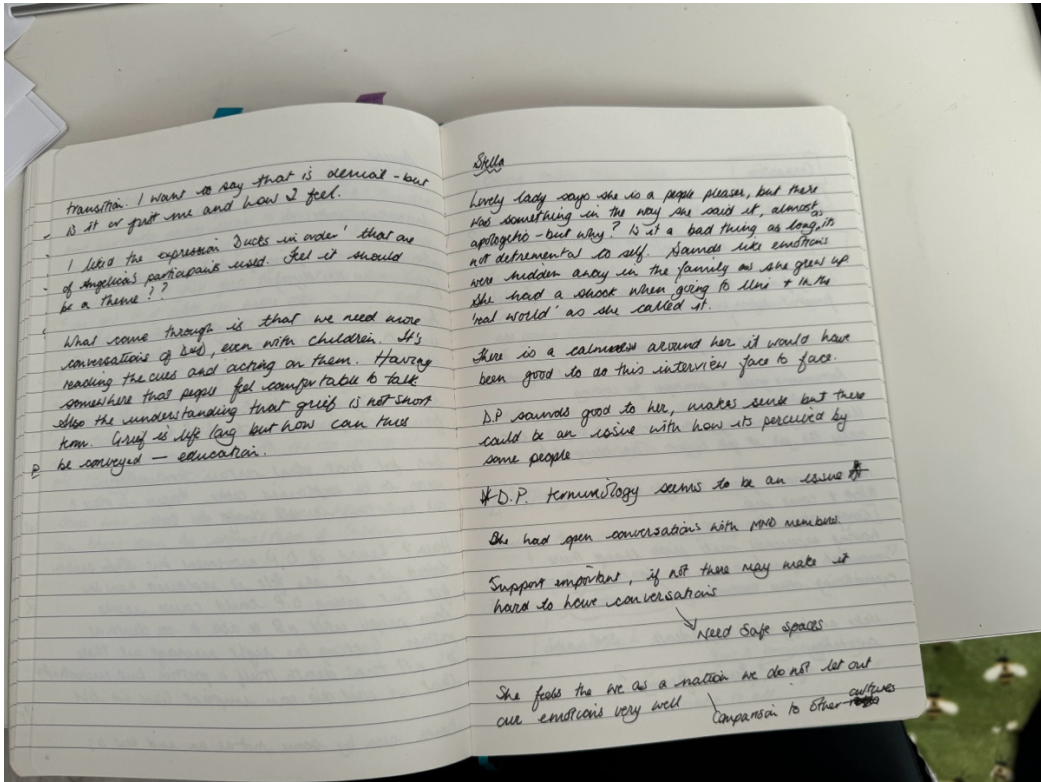 transition. I want to say that is denial - but
is it or just me and how I feel.
I liked the expression Ducks in order' that are
of Angelica's participants used. Feel it should
be a theme??
What came through is that we need more
conversations of D&D, even with children. It's
reading the cues and acting on them. Having
somewhere that people feel comfortable to talk
Also the understanding that grief is not short
term. Grief is life long but how can this
be conveyed — education.
Stella
Lovely lady says she is a people pleaser, but there
was something in the way she said it, almost
apologetic - but why? Is it a bad thing as long as its
not detremental to self. Sounds like emotions
were hidden away in the family as she grew up
She had a shock when going to Uni + in the
'real world' as she called it.
There is a calmness around her it would have
been good to do this interview face to face.
D.P sounds good to her, makes sense but there
could be an issue with how its perceived by
some people
* D.P. terminology seems to be an issue *
She had open conversations with MND members.
Support important, if not there may make it
hard to have conversations
Need Safe spaces
She feels the we as a nation we do not let out
our emotions very well
Comparison to other cultures